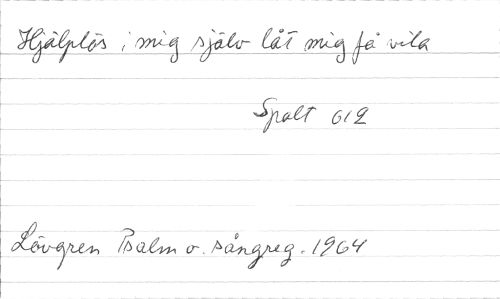 Hjälplös i mig själv låt mig få vila
Spalt 612
Lövgren Psalm o. sångreg. 1964